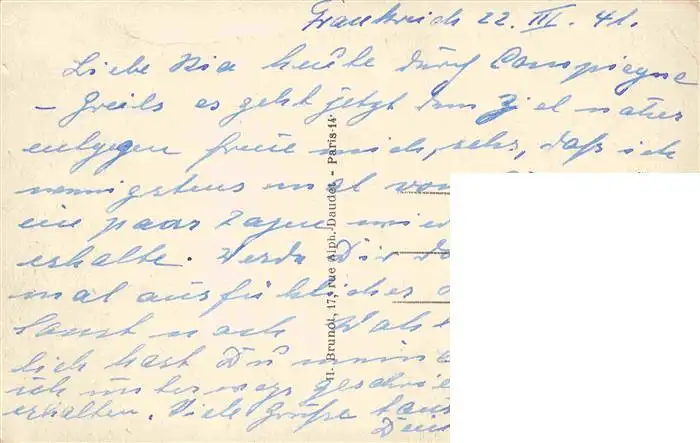 Frankreich 22. III. 41.
Liebe Ria heute durch Compiegne
– Greils es geht jetzt dem Ziel näher
entgegen freue mich, sehr, daß ich
wenigstens mal von
ein paar Zagen wied
erhalte. Werde Dir da
mal ausführlicher
sonst noch Wahr
lich hast Du mein
ich unterwegs geschrie
erhalten. Viele Grüße taus
Dein
H. Brundt, 17, rue Alph.-Daudet - Paris-14